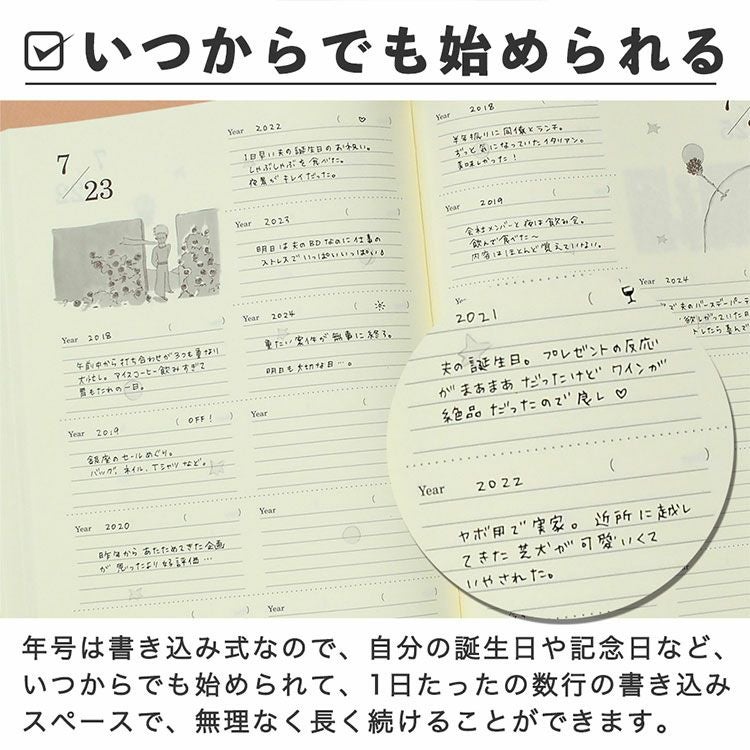 いつからでも始められる
7/23
Year 2018 ( )
午前中から打ち合わせが3つも重なり
大忙し。アイスコーヒー飲みすぎて
胃もたれの一日。
Year 2019 ( OFF! )
銀座のセールめぐり。
バッグ、ネイル、Tシャツなど。
Year 2020 ( )
昨年から あたためてきた企画
が 思ったより 好評価…
Year ( )
Year 2022 ( ♡ )
1日早い夫の誕生日のお祝い。
しゃぶしゃぶを食べた。
夜景がキレイだった。
Year 2023 ( )
明日は夫のBDなのに仕事の
ストレスでいっぱいいっぱい！
Year 2024 ( ☀ )
重たい案件が無事に終了。
明日も大切な日…。
Year ( )
Year ( )
Year ( )
Year 2018 ( )
半年振りに同僚とランチ。
ずっと気になっていたイタリアン。
美味しかった！
Year 2019 ( )
会社メンバーと夜は飲み会。
飲んで食べた〜
内容はほとんど覚えていない。
2021 ( )
夫の誕生日。プレゼントの反応
がまあまあだったけど ワインが
絶品だったので良し ♡
Year 2022 ( )
ヤボ用で実家。近所に越し
てきた芝犬が可愛いくて
いやされた。
Year 2024 (
で夫のバースデーパーテ
年号は書き込み式なので、自分の誕生日や記念日など、
いつからでも始められて、1日たったの数行の書き込み
スペースで、無理なく長く続けることができます。